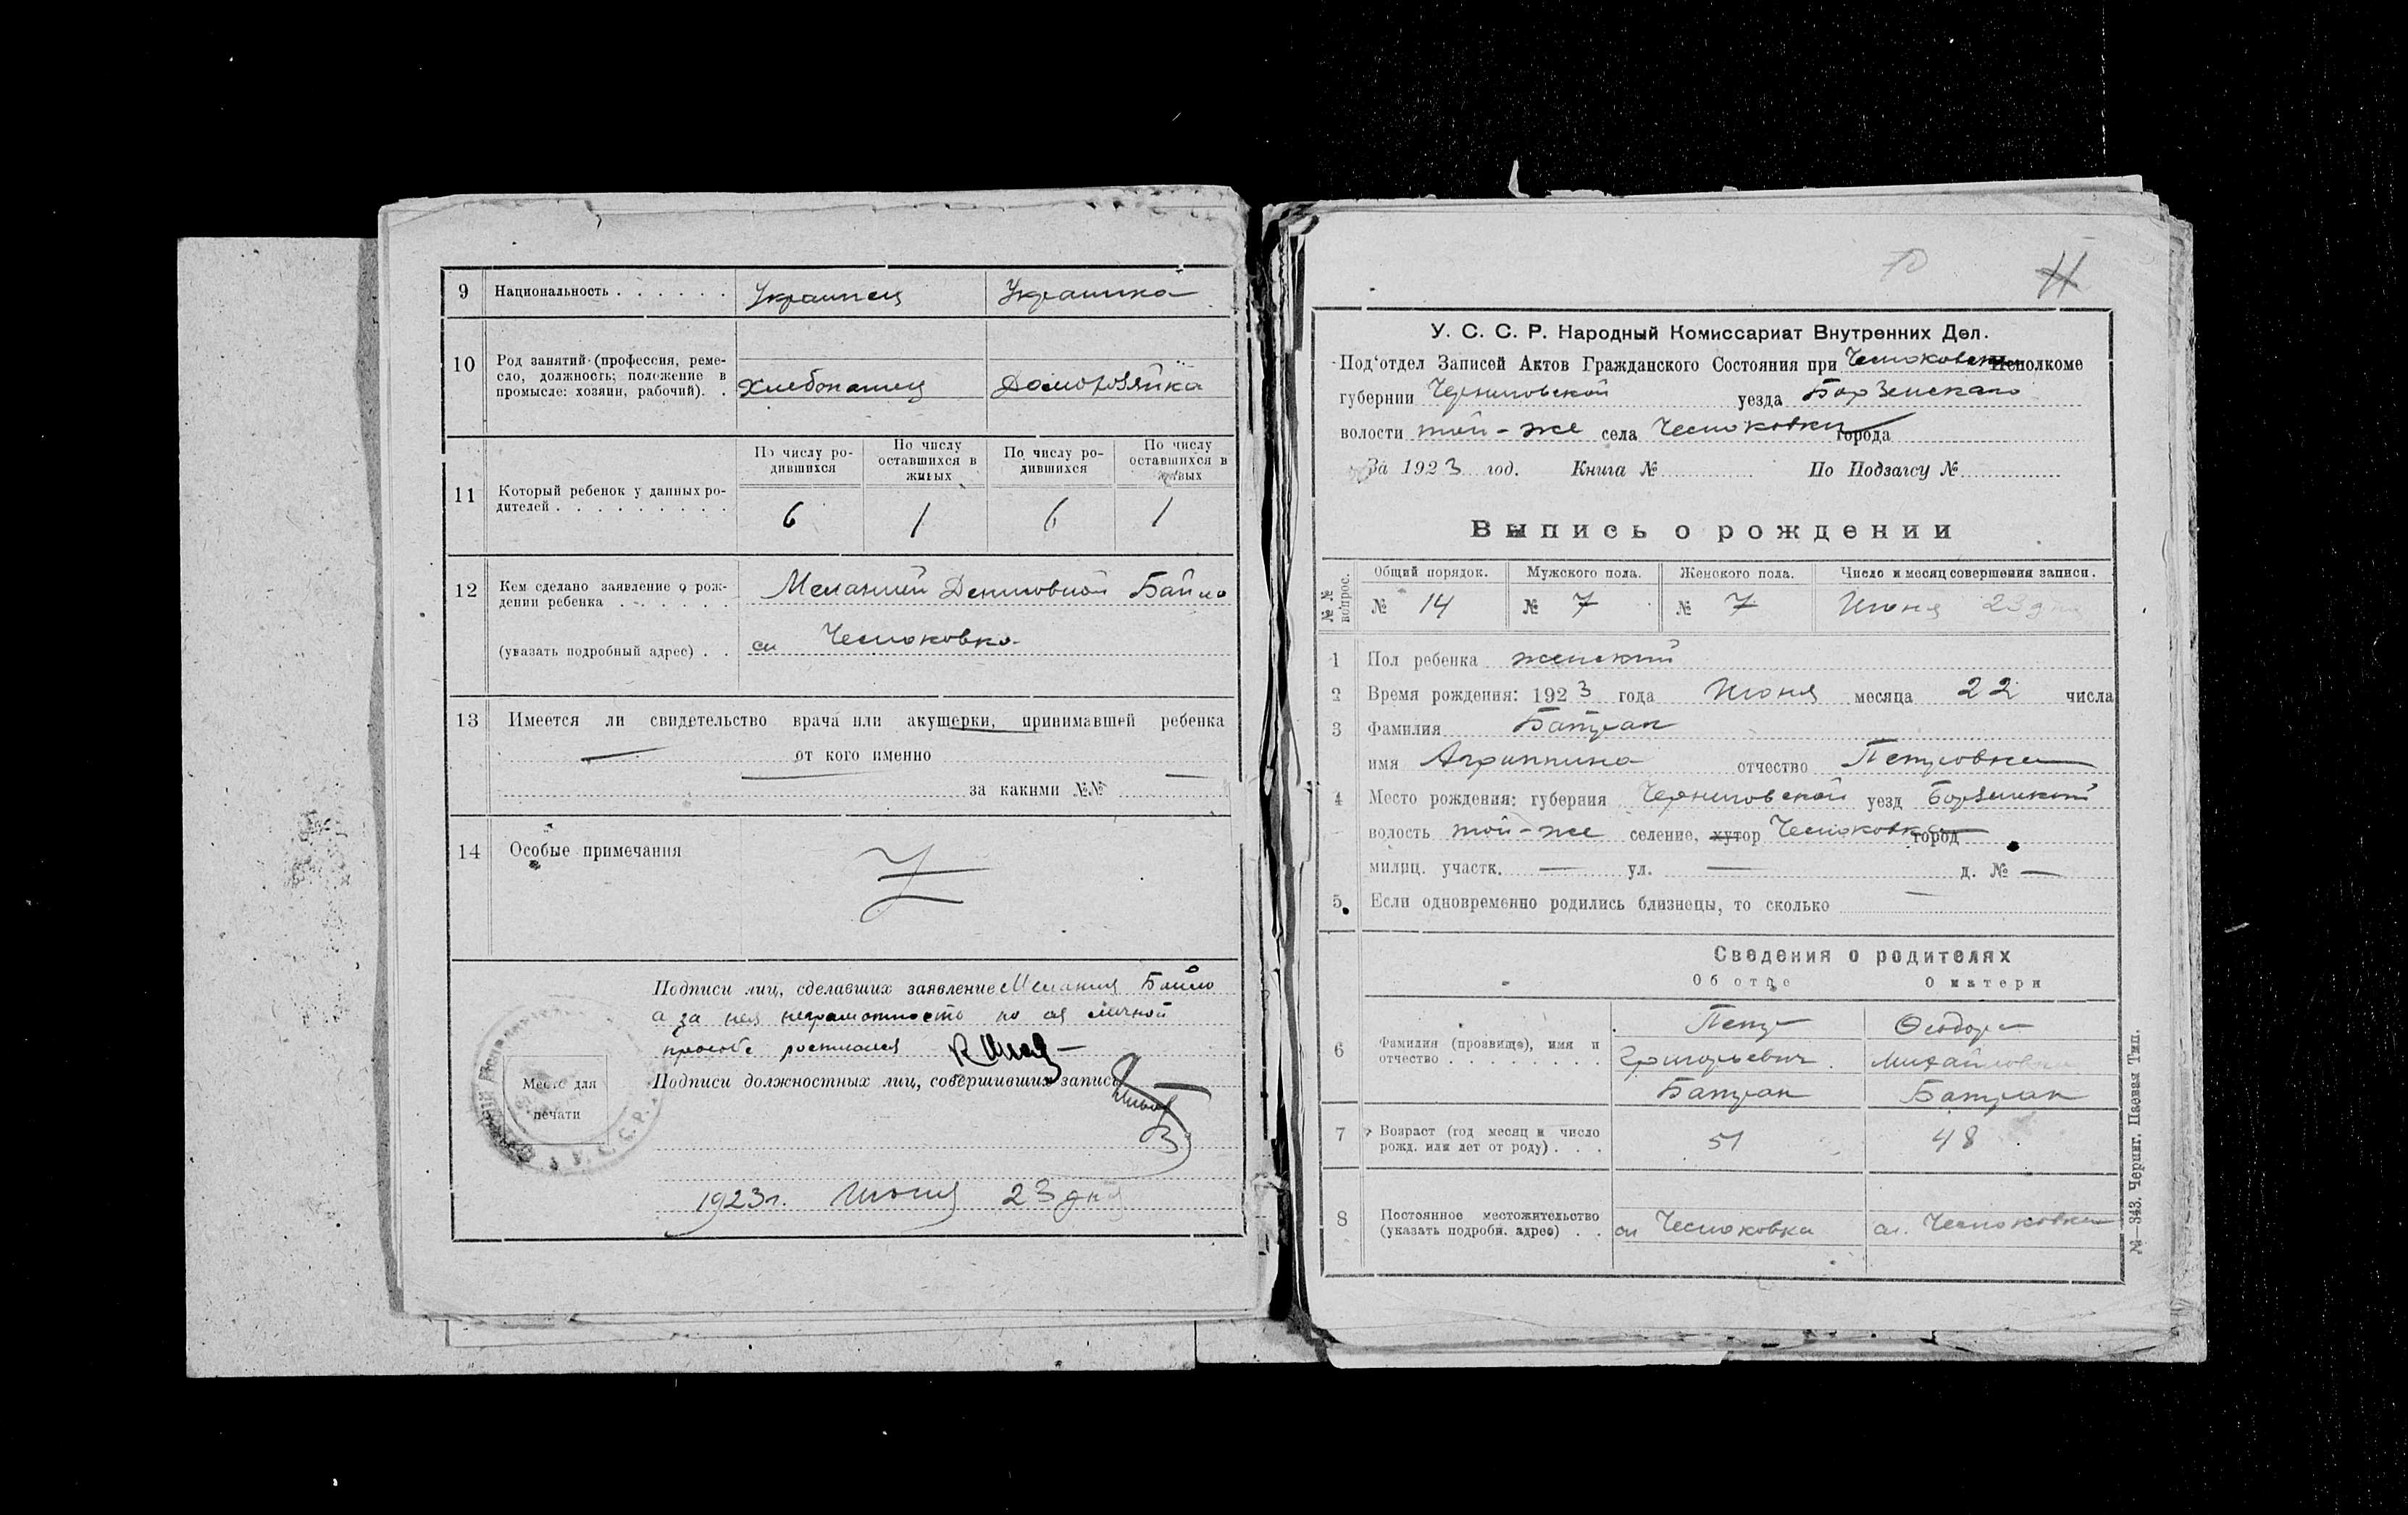 9 Национальность . . . . . . Украинец Украинка
10 Род занятий (профессия, реме-
сло, должность; положение в
промысле: хозяин, рабочий). . Хлебопашец Домохозяйка
11 Который ребенок у данных ро-
дителей . . . . . . . . .
По числу ро-
дившихся
По числу
оставшихся в
живых
По числу ро-
дившихся
По числу
оставшихся в
живых
6 1 6 1
12 Кем сделано заявление о рож-
дении ребенка . . . . . . Меланией Денисовной Байло
(указать подробный адрес) . . сл Чесноковка
13 Имеется ли свидетельство врача или акушерки, принимавшей ребенка
— от кого именно
за какими №№ —
14 Особые примечания
Подписи лиц, сделавших заявление Мелания Байло
а за нея неграмотность по ея личной
просьбе
Место для
печати
Подписи должностных лиц, совершивших запись
1923 г. Июня 23 дня
11
У. С. С. Р. Народный Комиссариат Внутренних Дел.
Под'отдел Записей Актов Гражданского Состояния при Исполкоме
губернии Черниговской уезда Борзенскаго
волости той-же села Чесноковки города
За 1923 год. Книга № По Подзагсу №
Выпись о рождении
№№ вопрос.
Общий порядок. Мужского пола. Женского пола. Число и месяц совершения записи.
№ 14 № 7 № 7 Июня 23 дня
1 Пол ребенка женский
2 Время рождения: 1923 года Июня месяца 22 числа
3 Фамилия Батрак
имя Агриппина отчество Петровна
4 Место рождения: губерния Черниговской уезд Борзенский
волость той-же селение, хутор Чесноковка город
милиц. участк. — ул. — д. № —
5 Если одновременно родились близнецы, то сколько —
Сведения о родителях
Об отце О матери
6 Фамилия (прозвище), имя и
отчество . . . . . . . . .
Петр Феодора
Григорьевич Михайловна
Батрак Батрак
7 Возраст (год месяц и число
рожд. или лет от роду) . . . 51 48
8 Постоянное местожительство
(указать подробн. адрес) . . сл Чесноковка сл. Чесноковка
№ 343. Черниг. Паевая Тип.